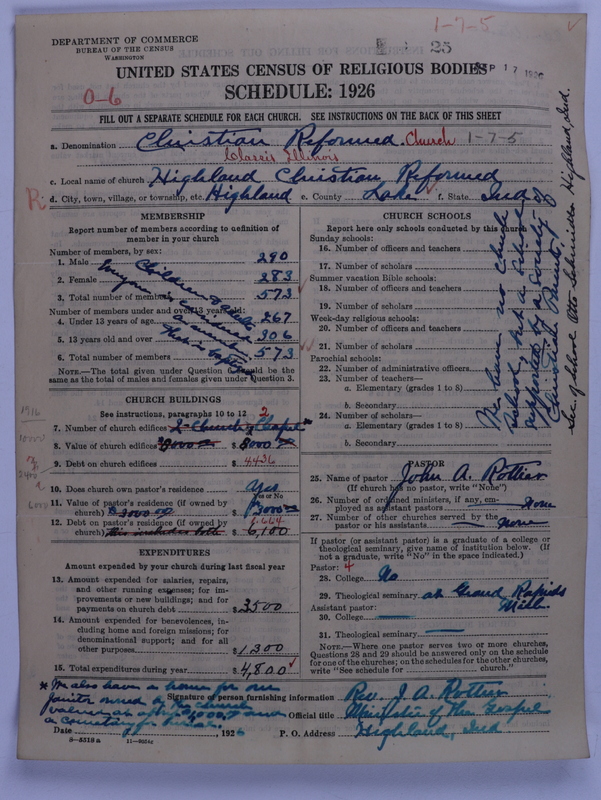 1-7-5
DEPARTMENT OF COMMERCE
BUREAU OF THE CENSUS
WASHINGTON
25
SEP 17 1926
UNITED STATES CENSUS OF RELIGIOUS BODIES
SCHEDULE: 1926
0-6
FILL OUT A SEPARATE SCHEDULE FOR EACH CHURCH. SEE INSTRUCTIONS ON THE BACK OF THIS SHEET
a. Denomination Christian Reformed Church 1-7-5
Classis Illinois
c. Local name of church Highland Christian Reformed
R d. City, town, village, or township, etc. Highland e. County Lake f. State Ind
MEMBERSHIP
Report number of members according to definition of member in your church
Number of members, by sex:
1. Male 290
2. Female 283
3. Total number of members 573
Number of members under and over 13 years old:
4. Under 13 years of age 267
5. 13 years old and over 306
6. Total number of members 573
NOTE.—The total given under Question 6 should be the
same as the total of males and females given under Question 3.
CHURCH BUILDINGS
See instructions, paragraphs 10 to 12
2
7. Number of church edifices 2 Church & Chapel
8. Value of church edifices 8000 $ 8000
9. Debt on church edifices $ 4436
10. Does church own pastor's residence yes
Yes or No
11. Value of pastor's residence (if owned by
church) $3000.00 $ 3000
12. Debt on pastor's residence (if owned by
church) this includes both $ 6,100
1,664
EXPENDITURES
Amount expended by your church during last fiscal year
13. Amount expended for salaries, repairs,
and other running expenses; for im-
provements or new buildings; and for
payments on church debt $ 3500
14. Amount expended for benevolences, in-
cluding home and foreign missions; for
denominational support; and for all
other purposes $ 1,300
15. Total expenditures during year $ 4,800
CHURCH SCHOOLS
Report here only schools conducted by this church
Sunday schools:
16. Number of officers and teachers
17. Number of scholars
Summer vacation Bible schools:
18. Number of officers and teachers
19. Number of scholars
Week-day religious schools:
20. Number of officers and teachers
21. Number of scholars
Parochial schools:
22. Number of administrative officers
23. Number of teachers—
a. Elementary (grades 1 to 8)
b. Secondary
24. Number of scholars—
a. Elementary (grades 1 to 8)
b. Secondary
We have no church
school, but a school
supported by a society of
Christian Parents
Sec. of School Otto Schmidt Highland, Ind.
PASTOR
25. Name of pastor John A. Rottier
(If church has no pastor, write "None")
26. Number of ordained ministers, if any, em-
ployed as assistant pastors none
27. Number of other churches served by the
pastor or his assistants none
If pastor (or assistant pastor) is a graduate of a college or
theological seminary, give name of institution below. (If
not a graduate, write "No" in the space indicated.)
Pastor: 4
28. College No
29. Theological seminary at Grand Rapids
Mich.
Assistant pastor:
30. College
31. Theological seminary
NOTE.—Where one pastor serves two or more churches,
Questions 28 and 29 should be answered only on the schedule
for one of the churches; on the schedules for the other churches,
write "See schedule for church."
* We also have a home for our
janitor owned by the church
a cemetery for burial.
Signature of person furnishing information Rev. J. A. Rottier
Official title Minister of the Gospel
Date , 1926 P. O. Address Highland, Ind
S-5518a 11-9504c